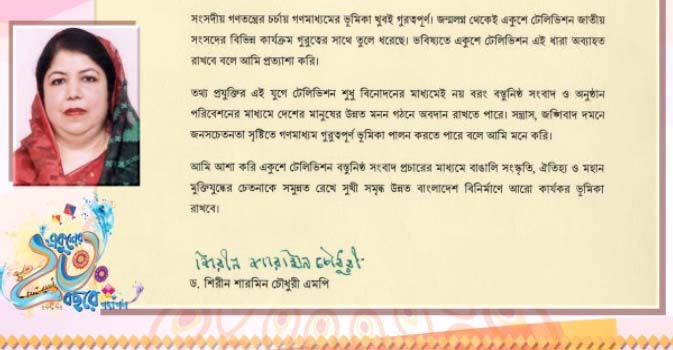 সংসদীয় গণতন্ত্রের চর্চায় গণমাধ্যমের ভূমিকা খুবই গুরত্বপূর্ণ। জন্মলগ্ন থেকেই একুশে টেলিভিশন জাতীয়
সংসদের বিভিন্ন কার্যক্রম গুরুত্বের সাথে তুলে ধরেছে। ভবিষ্যতে একুশে টেলিভিশন এই ধারা অব্যাহত
রাখবে বলে আমি প্রত্যাশা করি।
তথ্য প্রযুক্তির এই যুগে টেলিভিশন শুধু বিনোদনের মাধ্যমেই নয় বরং বস্তুনিষ্ঠ সংবাদ ও অনুষ্ঠান
পরিবেশনের মাধ্যমে দেশের মানুষের উন্নত মনন গঠনে অবদান রাখতে পারে। সন্ত্রাস, জঙ্গিবাদ দমনে
জনসচেতনতা সৃষ্টিতে গণমাধ্যম গুরত্বপূর্ণ ভূমিকা পালন করতে পারে বলে আমি মনে করি।
আমি আশা করি একুশে টেলিভিশন বস্তুনিষ্ঠ সংবাদ প্রচারের মাধ্যমে বাঙালি সংস্কৃতি, ঐতিহ্য ও মহান
মুক্তিযুদ্ধের চেতনাকে সমুন্নত রেখে সুখী সমৃদ্ধ উন্নত বাংলাদেশ বিনির্মাণে আরো কার্যকর ভূমিকা
রাখবে।
শিরীন শারমিন চৌধুরী
ড. শিরীন শারমিন চৌধুরী এমপি
একুশের
২৩
বছরে পদার্পণ